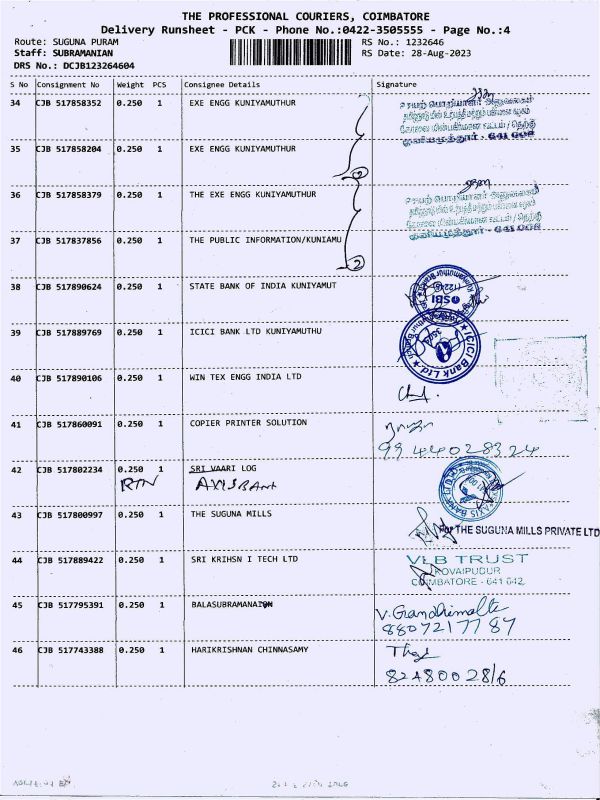 THE PROFESSIONAL COURIERS, COIMBATORE
Delivery Runsheet - PCK - Phone No.:0422-3505555 - Page No.:4
Route: SUGUNA PURAM RS No.: 1232646
Staff: SUBRAMANIAN RS Date: 28-Aug-2023
DRS No.: DCJB123264604
S No Consignment No Weight PCS Consignee Details Signature
34 CJB 517858352 0.250 1 EXE ENGG KUNIYAMUTHUR
35 CJB 517858204 0.250 1 EXE ENGG KUNIYAMUTHUR
36 CJB 517858379 0.250 1 THE EXE ENGG KUNIYAMUTHUR
37 CJB 517837856 0.250 1 THE PUBLIC INFORMATION/KUNIAMU
2
38 CJB 517890624 0.250 1 STATE BANK OF INDIA KUNIYAMUT
SBI
39 CJB 517889769 0.250 1 ICICI BANK LTD KUNIYAMUTHU
ICICI Bank Ltd
40 CJB 517890106 0.250 1 WIN TEX ENGG INDIA LTD
41 CJB 517860091 0.250 1 COPIER PRINTER SOLUTION
9944028324
42 CJB 517802234 0.250 1 SRI VAARI LOG
RTN AXIS BANK
AXIS BANK
43 CJB 517800997 0.250 1 THE SUGUNA MILLS
For THE SUGUNA MILLS PRIVATE LTD
44 CJB 517889422 0.250 1 SRI KRIHSN I TECH LTD
VLB TRUST
KOVAIPUDUR
COIMBATORE - 641 042.
45 CJB 517795391 0.250 1 BALASUBRAMANAION
8807217787
46 CJB 517743388 0.250 1 HARIKRISHNAN CHINNASAMY
8248002816